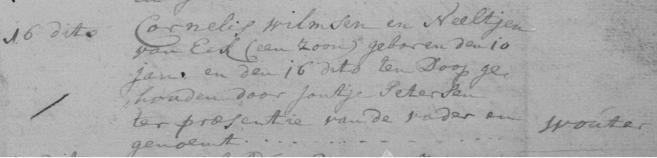 16 dito Cornelis Wilmsen en Neeltjen
van Eck (een zoon) geboren den 10
jan. en den 16 dito ten Doop ge,
houden door Jantje Petersen
ter præsentie van de vader en wouter
genoemt. . . . . . . . . . . .